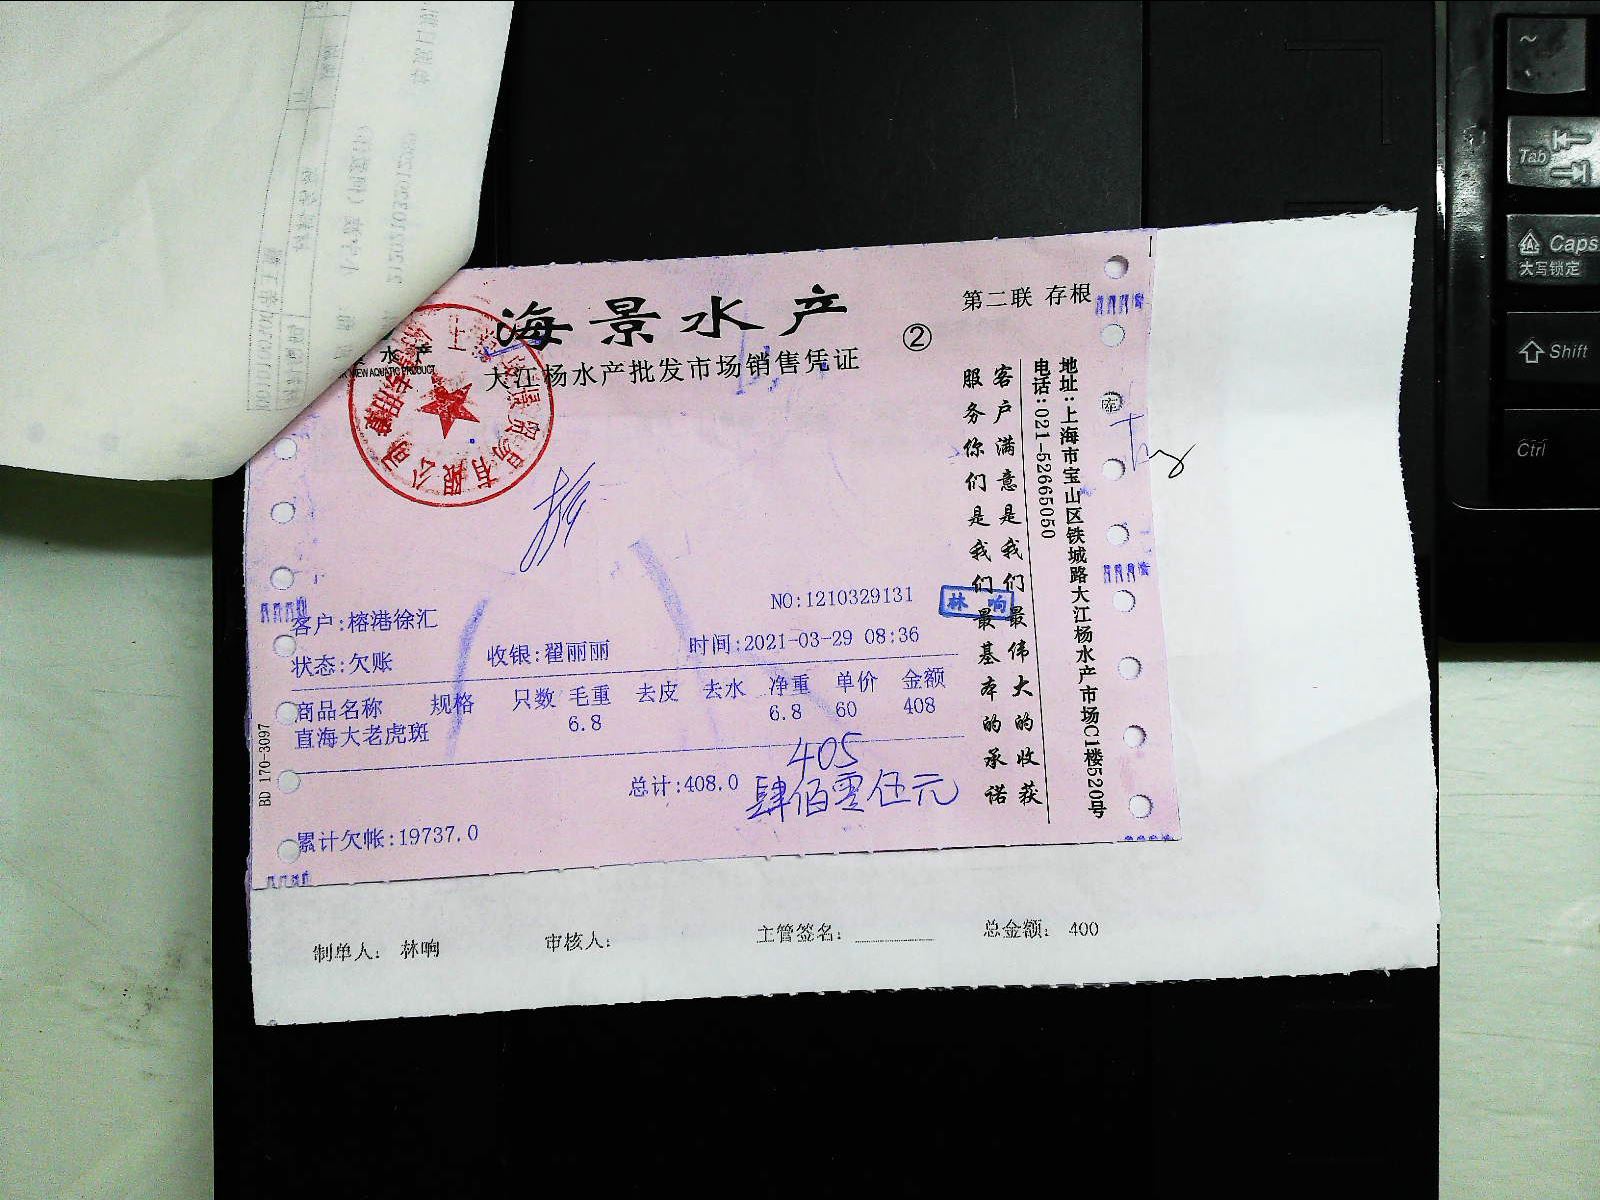 海景水产
②
第二联 存根
水产
VIEW AQUATIC PRODUCT
大江杨水产批发市场销售凭证
客户满意是我们最伟大的收获
服务你们是我们最基本的承诺
地址:上海市宝山区铁城路大江杨水产市场C1楼520号
电话:021-52665050
NO:1210329131
林响
客户:榕港徐汇
状态:欠账 收银:翟丽丽 时间:2021-03-29 08:36
商品名称 规格 只数 毛重 去皮 去水 净重 单价 金额
直海大老虎斑 6.8 6.8 60 408
总计:408.0
405
肆佰零伍元
累计欠帐:19737.0
BD 170-3097
制单人: 林响 审核人: 主管签名: 总金额: 400
~
Tab
Caps
大写锁定
Shift
Ctrl